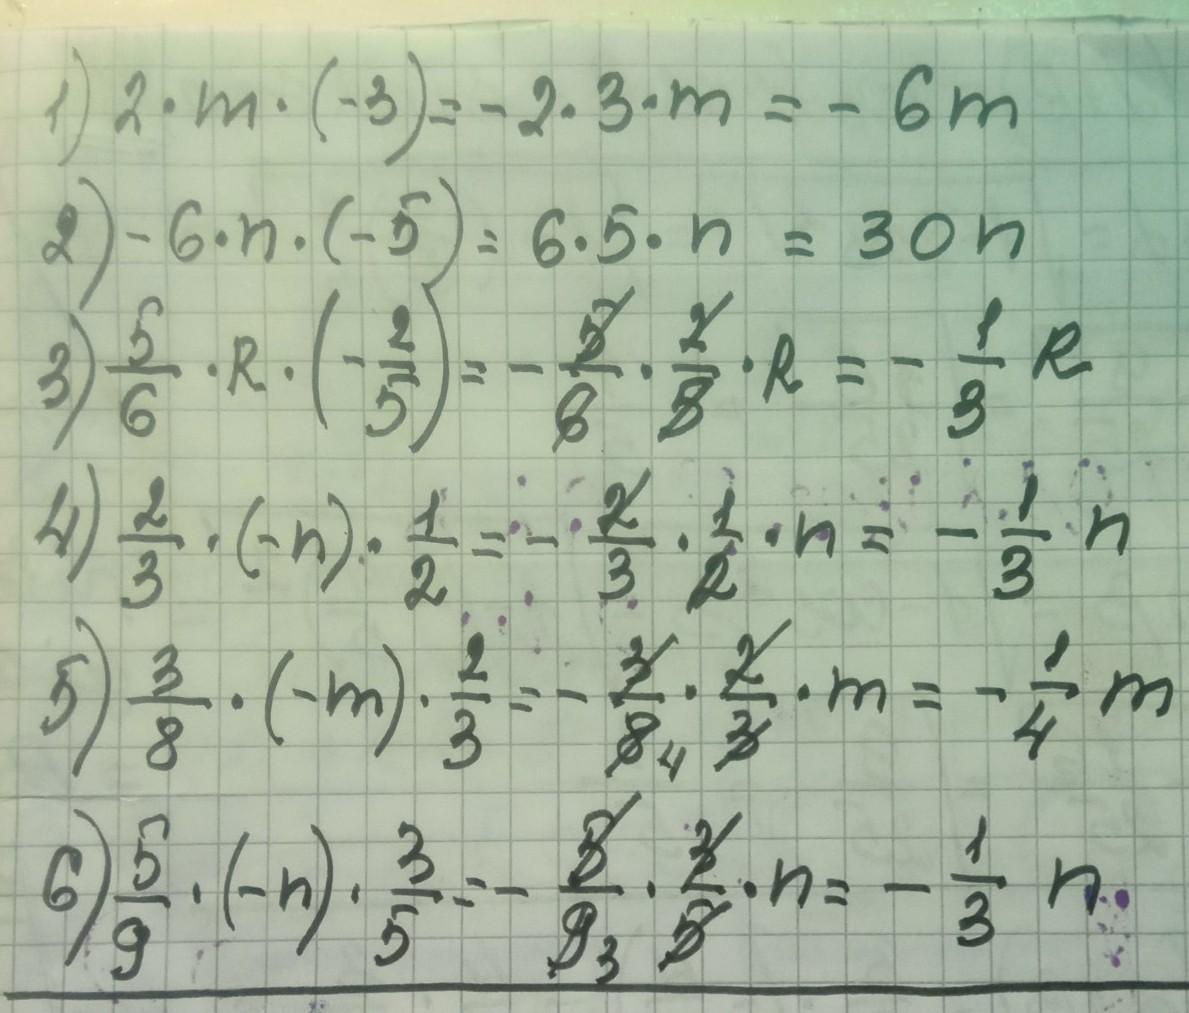 1) 2 · m · (-3) = - 2 · 3 · m = - 6m
2) - 6 · n · (-5) = 6 · 5 · n = 30n
3) 5/6 · k · (-2/5) = - 5/6 · 2/5 · k = - 1/3 k
4) 2/3 · (-n) · 1/2 = - 2/3 · 1/2 · n = - 1/3 n
5) 3/8 · (-m) · 2/3 = - 3/8 4 · 2/3 · m = - 1/4 m
6) 5/9 · (-n) · 3/5 = - 5/9 3 · 3/5 · n = - 1/3 n